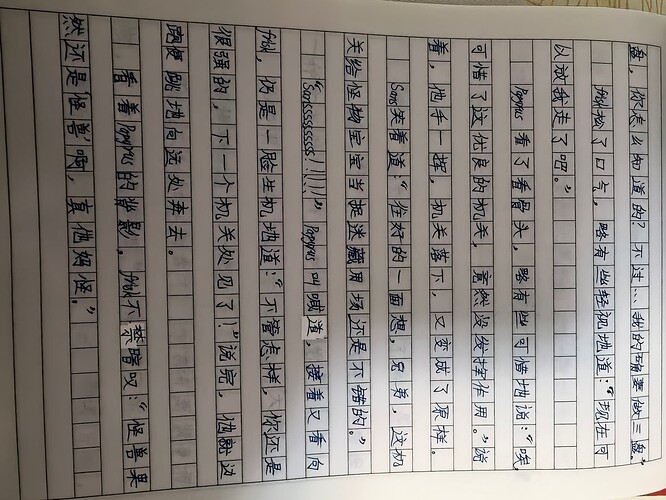 盘，你怎么知道的？不过…我的确要做三盘。”
frisk松了口气，略有些轻视地道：“现在可
以放我走了吧。”
Papyrus看了看骨头，略有些可惜地说：“唉，
可惜了这优良的机关，竟然没发挥作用。”说
着，他手一挥，机关落下，又变成了原样。
Sans笑着道：“往好的一面想，兄弟，这机
关给怪物宝宝当捉迷藏用场还是不错的。”
“Sansssssssss！！！！！”Papyrus叫喊道，接着又看向
frisk，仍是一脸生机地道：“不管怎样，你还是
很强的，下一个机关处见了！”说完，他就边
跑便跳地向远处奔去。
看着Papyrus的背影，frisk不禁暗叹：“怪兽果
然还是怪兽啊，真他妈怪。”